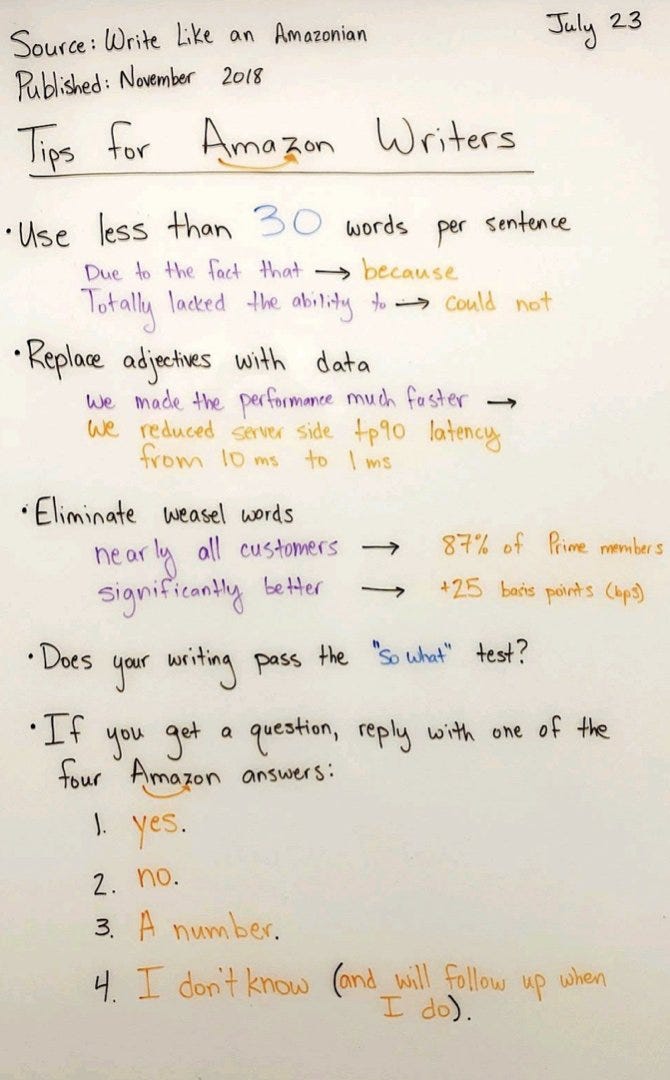 July 23
Source: Write Like an Amazonian
Published: November 2018
Tips for Amazon Writers
• Use less than 30 words per sentence
Due to the fact that → because
Totally lacked the ability to → could not
• Replace adjectives with data
We made the performance much faster →
We reduced server side tp90 latency
from 10 ms to 1 ms
• Eliminate weasel words
nearly all customers → 87% of Prime members
significantly better → +25 basis points (bps)
• Does your writing pass the "So what" test?
• If you get a question, reply with one of the
four Amazon answers:
1. yes.
2. no.
3. A number.
4. I don't know (and will follow up when
I do).